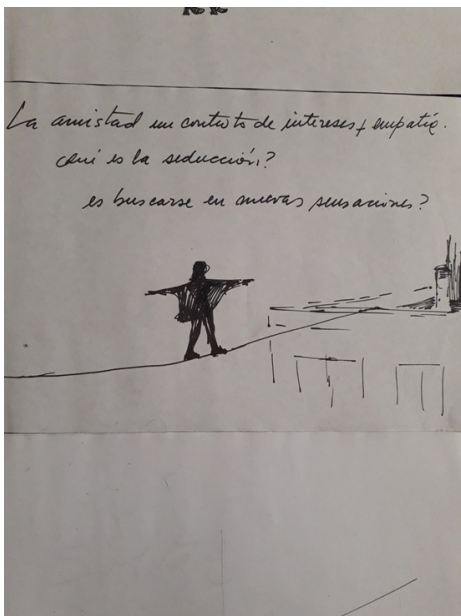 La amistad un contexto de intereses + empatía.
qué es la seducción?
es buscarse en nuevas sensaciones?